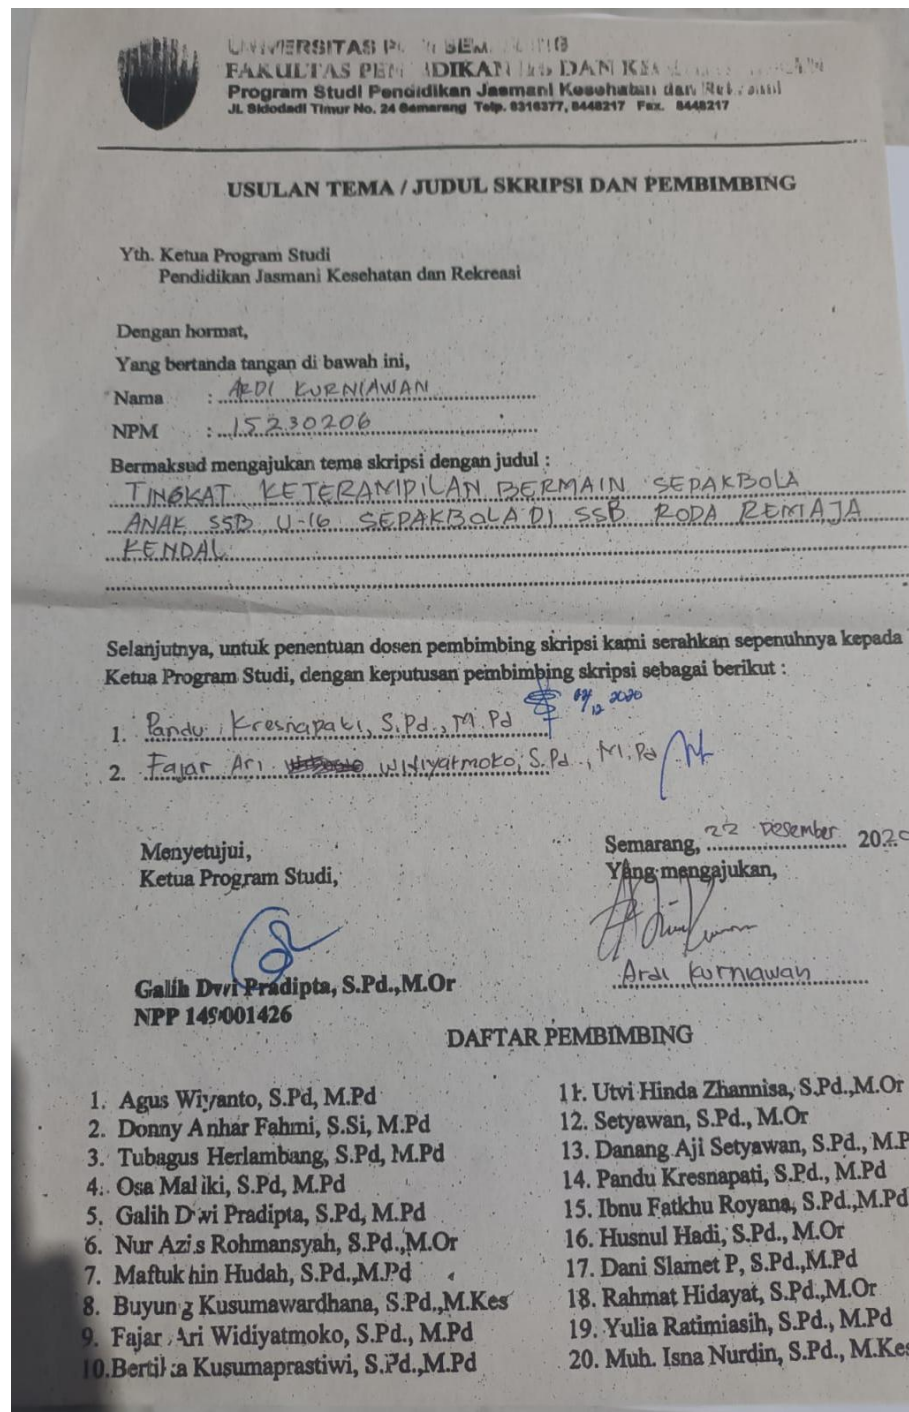 UNIVERSITAS
FAKULTAS DAN
Program Studi Pendidikan Jasmani Kesehatan dan
JL. Sidodadi Timur No. 24 Semarang Telp. 8316377, 8448217 Fax. 8448217
USULAN TEMA / JUDUL SKRIPSI DAN PEMBIMBING
Yth. Ketua Program Studi
Pendidikan Jasmani Kesehatan dan Rekreasi
Dengan hormat,
Yang bertanda tangan di bawah ini,
Nama : ARDI KURNIAWAN
NPM : 15230206
Bermaksud mengajukan tema skripsi dengan judul :
TINGKAT KETERAMPILAN BERMAIN SEPAKBOLA
ANAK SSB U-16 SEPAKBOLA DI SSB RODA REMAJA
KENDAL
Selanjutnya, untuk penentuan dosen pembimbing skripsi kami serahkan sepenuhnya kepada
Ketua Program Studi, dengan keputusan pembimbing skripsi sebagai berikut :
1. Pandu Kresnapati, S.Pd., M.Pd
2. Fajar Ari Widiyatmoko, S.Pd., M.Pd
Menyetujui,
Ketua Program Studi,
Semarang, 22 Desember 2020
Yang mengajukan,
Ardi Kurniawan
Galih Dwi Pradipta, S.Pd.,M.Or
NPP 149001426
DAFTAR PEMBIMBING
1. Agus Wiyanto, S.Pd, M.Pd
2. Donny Anhar Fahmi, S.Si, M.Pd
3. Tubagus Herlambang, S.Pd, M.Pd
4. Osa Maliki, S.Pd, M.Pd
5. Galih Dwi Pradipta, S.Pd, M.Pd
6. Nur Azis Rohmansyah, S.Pd.,M.Or
7. Maftukhin Hudah, S.Pd.,M.Pd
8. Buyung Kusumawardhana, S.Pd.,M.Kes
9. Fajar Ari Widiyatmoko, S.Pd., M.Pd
10.Bertika Kusumaprastiwi, S.Pd.,M.Pd
11. Utvi Hinda Zhannisa, S.Pd.,M.Or
12. Setyawan, S.Pd., M.Or
13. Danang Aji Setyawan, S.Pd., M.P
14. Pandu Kresnapati, S.Pd., M.Pd
15. Ibnu Fatkhu Royana, S.Pd.,M.Pd
16. Husnul Hadi, S.Pd., M.Or
17. Dani Slamet P, S.Pd.,M.Pd
18. Rahmat Hidayat, S.Pd.,M.Or
19. Yulia Ratimiasih, S.Pd., M.Pd
20. Muh. Isna Nurdin, S.Pd., M.Kes